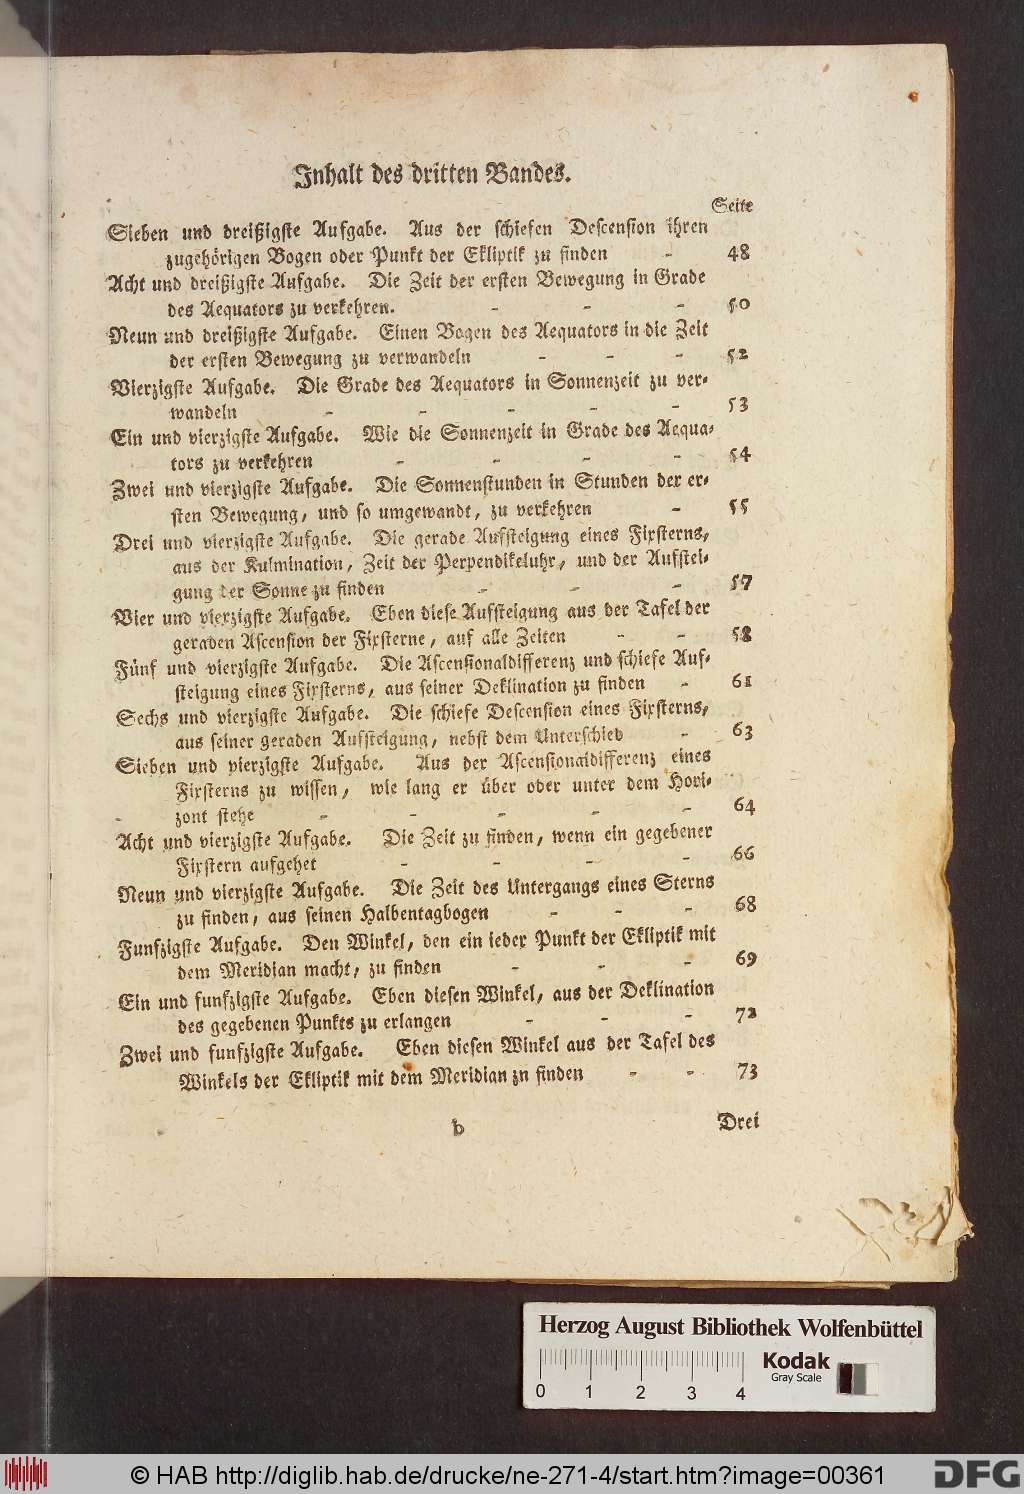 Inhalt des dritten Bandes.
Seite
Sieben und dreißigste Aufgabe. Aus der schiefen Descension ihren
zugehörigen Bogen oder Punkt der Ekliptik zu finden - 48
Acht und dreißigste Aufgabe. Die Zeit der ersten Bewegung in Grade
des Aequators zu verkehren. - - - 50
Neun und dreißigste Aufgabe. Einen Bogen des Aequators in die Zeit
der ersten Bewegung zu verwandeln - - - 52
Vierzigste Aufgabe. Die Grade des Aequators in Sonnenzeit zu ver-
wandeln - - - - - 53
Ein und vierzigste Aufgabe. Wie die Sonnenzeit in Grade des Aequa-
tors zu verkehren - - - - 54
Zwei und vierzigste Aufgabe. Die Sonnenstunden in Stunden der er-
sten Bewegung, und so umgewandt, zu verkehren - 55
Drei und vierzigste Aufgabe. Die gerade Aufsteigung eines Fixsterns,
aus der Kulmination, Zeit der Perpendikeluhr, und der Aufstei-
gung der Sonne zu finden - - - 57
Vier und vierzigste Aufgabe. Eben diese Aufsteigung aus der Tafel der
geraden Ascension der Fixsterne, auf alle Zeiten - - 58
Fünf und vierzigste Aufgabe. Die Ascensionaldifferenz und schiefe Auf-
steigung eines Fixsterns, aus seiner Deklination zu finden - 61
Sechs und vierzigste Aufgabe. Die schiefe Descension eines Fixsterns,
aus seiner geraden Aufsteigung, nebst dem Unterschied - 63
Sieben und vierzigste Aufgabe. Aus der Ascensionaldifferenz eines
Fixsterns zu wissen, wie lang er über oder unter dem Hori-
zont stehe - - - - - 64
Acht und vierzigste Aufgabe. Die Zeit zu finden, wenn ein gegebener
Fixstern aufgehet - - - - 66
Neun und vierzigste Aufgabe. Die Zeit des Untergangs eines Sterns
zu finden, aus seinen Halbentagbogen - - - 68
Funfzigste Aufgabe. Den Winkel, den ein jeder Punkt der Ekliptik mit
dem Meridian macht, zu finden - - - 69
Ein und funfzigste Aufgabe. Eben diesen Winkel, aus der Deklination
des gegebenen Punkts zu erlangen - - - 72
Zwei und funfzigste Aufgabe. Eben diesen Winkel aus der Tafel des
Winkels der Ekliptik mit dem Meridian zn finden - - 73
b Drei
Herzog August Bibliothek Wolfenbüttel
Kodak
Gray Scale
0 1 2 3 4
© HAB http://diglib.hab.de/drucke/ne-271-4/start.htm?image=00361
DFG